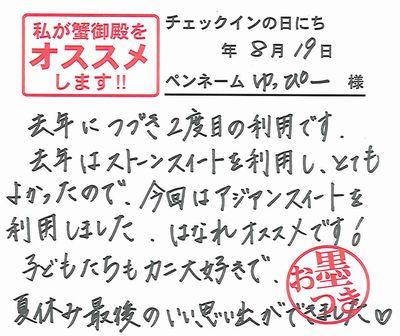 私が蟹御殿を
オススメ
します!!
チェックインの日にち
年 8月 19日
ペンネーム ゆっぴー 様
去年につづき2度目の利用です.
去年はストーンスイートを利用し、とても
よかったので、今回はアジアンスイートを
利用しました. はなれオススメです!
子どもたちもカニ大好きで、
夏休み最後のいい思い出ができました♡
お墨つき